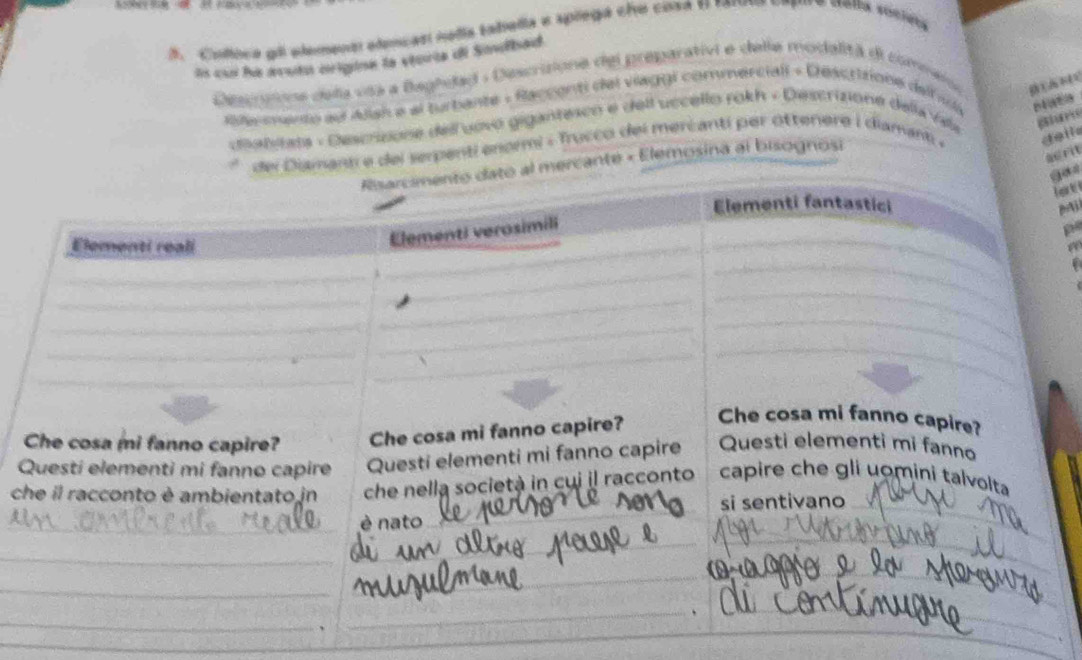 3. Colloca gli elementi elencati nella tabella e spiega che cosa ti fanno capire della società
in cui ha avuto origine la storia di Sindbad.
Descrizione della vita a Baghdad • Descrizione dei preparativi e delle modalità di
Riferimento ad Allah e al turbante • Racconti dei viaggi commerciali • Descrizione dell'
disabitata • Descrizione dell'uovo gigantesco e dell'uccello rokh • Descrizione della Valle
dei Diamanti e dei serpenti enormi • Trucco dei mercanti per ottenere i diamanti •
Risarcimento dato al mercante • Elemosina ai bisognosi
Elementi reali
Elementi verosimili
Elementi fantastici
Che cosa mi fanno capire?
Questi elementi mi fanno capire
che il racconto è ambientato in
un ambiente reale
Che cosa mi fanno capire?
Questi elementi mi fanno capire
che nella società in cui il racconto
è nato le persone sono
di un altro paese e
musulmane
Che cosa mi fanno capire?
Questi elementi mi fanno
capire che gli uomini talvolta
si sentivano ma
il
coraggio e la
di continuare